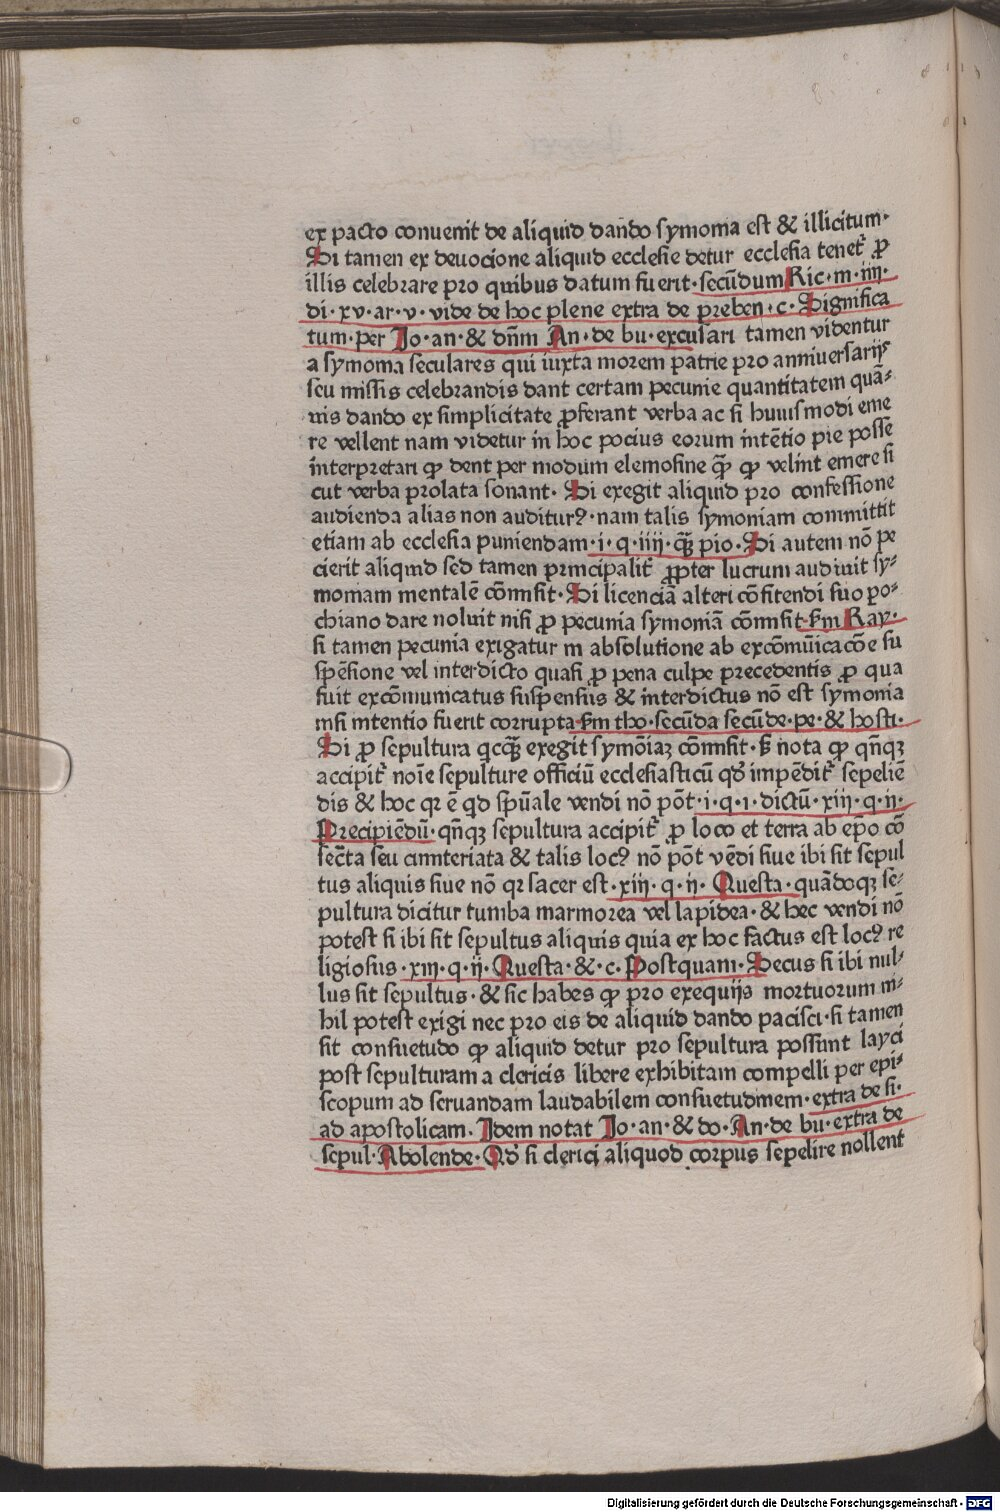 ex pacto conuenit de aliquid dando symonia est & illicitum·
Si tamen ex deuocione aliquid ecclesie detur ecclesia tenet᷑ ꝓ
illis celebrare pro quibus datum fuerit·secūdum Ric·in·iiii·
di·xv·ar·v·vide de hoc plene extra de preben·c·Significa
tum·per Io·an·& dn̄m An·de bu·excusari tamen videntur
a symonia seculares qui iuxta morem patrie pro anniuersarijs
seu missis celebrandis dant certam pecunie quantitatem quā-
uis dando ex simplicitate ꝓferant verba ac si huiusmodi eme
re vellent nam videtur in hoc pocius eorum intētio pie posse
interpretari ꝙ dent per modum elemosine q̄ꝫ ꝙ velint emere si
cut verba prolata sonant· Si exegit aliquid pro confessione
audienda alias non auditurꝰ·nam talis symoniam committit
etiam ab ecclesia puniendam·i·q·iiii·q̄ꝫ pio·Si autem nō pe
cierit aliquid sed tamen principalit᷑ ꝓpter lucrum audiuit sy-
moniam mentalē cōmisit·Si licenciā alteri cōfitendi suo po-
chiano dare noluit nisi ꝓ pecunia symoniā cōmisit·ẜm Ray·
si tamen pecunia exigatur in absolutione ab excōmūicacōe su
spēsione vel interdicto quasi ꝓ pena culpe precedentis ꝓ qua
fuit excōmunicatus suspensus & interdictus nō est symonia
nisi intentio fuerit corrupta·ẜm tho·secūda secūde·pe·& hosti·
Si ꝓ sepultura qcq̄ꝫ exegit symōiaꝫ cōmisit·ẜ nota ꝙ qn̄qꝫ
accipit᷑ noīe sepulture officiū ecclesiasticū qd̓ impēdit᷑ sepeliē
dis & hoc qr ē qd spūale vendi nō pōt·i·q·i·dictū·xiii·q·ii·
Precipiēdū·qn̄qꝫ sepultura accipit᷑ ꝓ loco et terra ab ep̄o cō
sec̄ta seu cimiteriata & talis locꝰ nō pōt vēdi siue ibi sit sepul
tus aliquis siue nō qr sacer est·xiii·q·ii· Questa·quādoqꝫ se-
pultura dicitur tumba marmorea vel lapidea·& hec vendi nō
potest si ibi sit sepultus aliquis quia ex hoc factus est locꝰ re
ligiosus·xiii·q·ii·Questa·&·c·Postquam·Secus si ibi nul-
lus sit sepultus·& sic habes ꝙ pro exequijs mortuorum ni-
hil potest exigi nec pro eis de aliquid dando pacisci·si tamen
sit consuetudo ꝙ aliquid detur pro sepultura possunt layci
post sepulturam a clericis libere exhibitam compelli per epi-
scopum ad seruandam laudabilem consuetudinem·extra de si·
ad apostolicam·Idem notat Io·an·& do·An·de bu·extra de
sepul·Abolende·Qd̓ si clerici aliquod corpus sepelire nollent
Digitalisierung gefördert durch die Deutsche Forschungsgemeinschaft - DFG